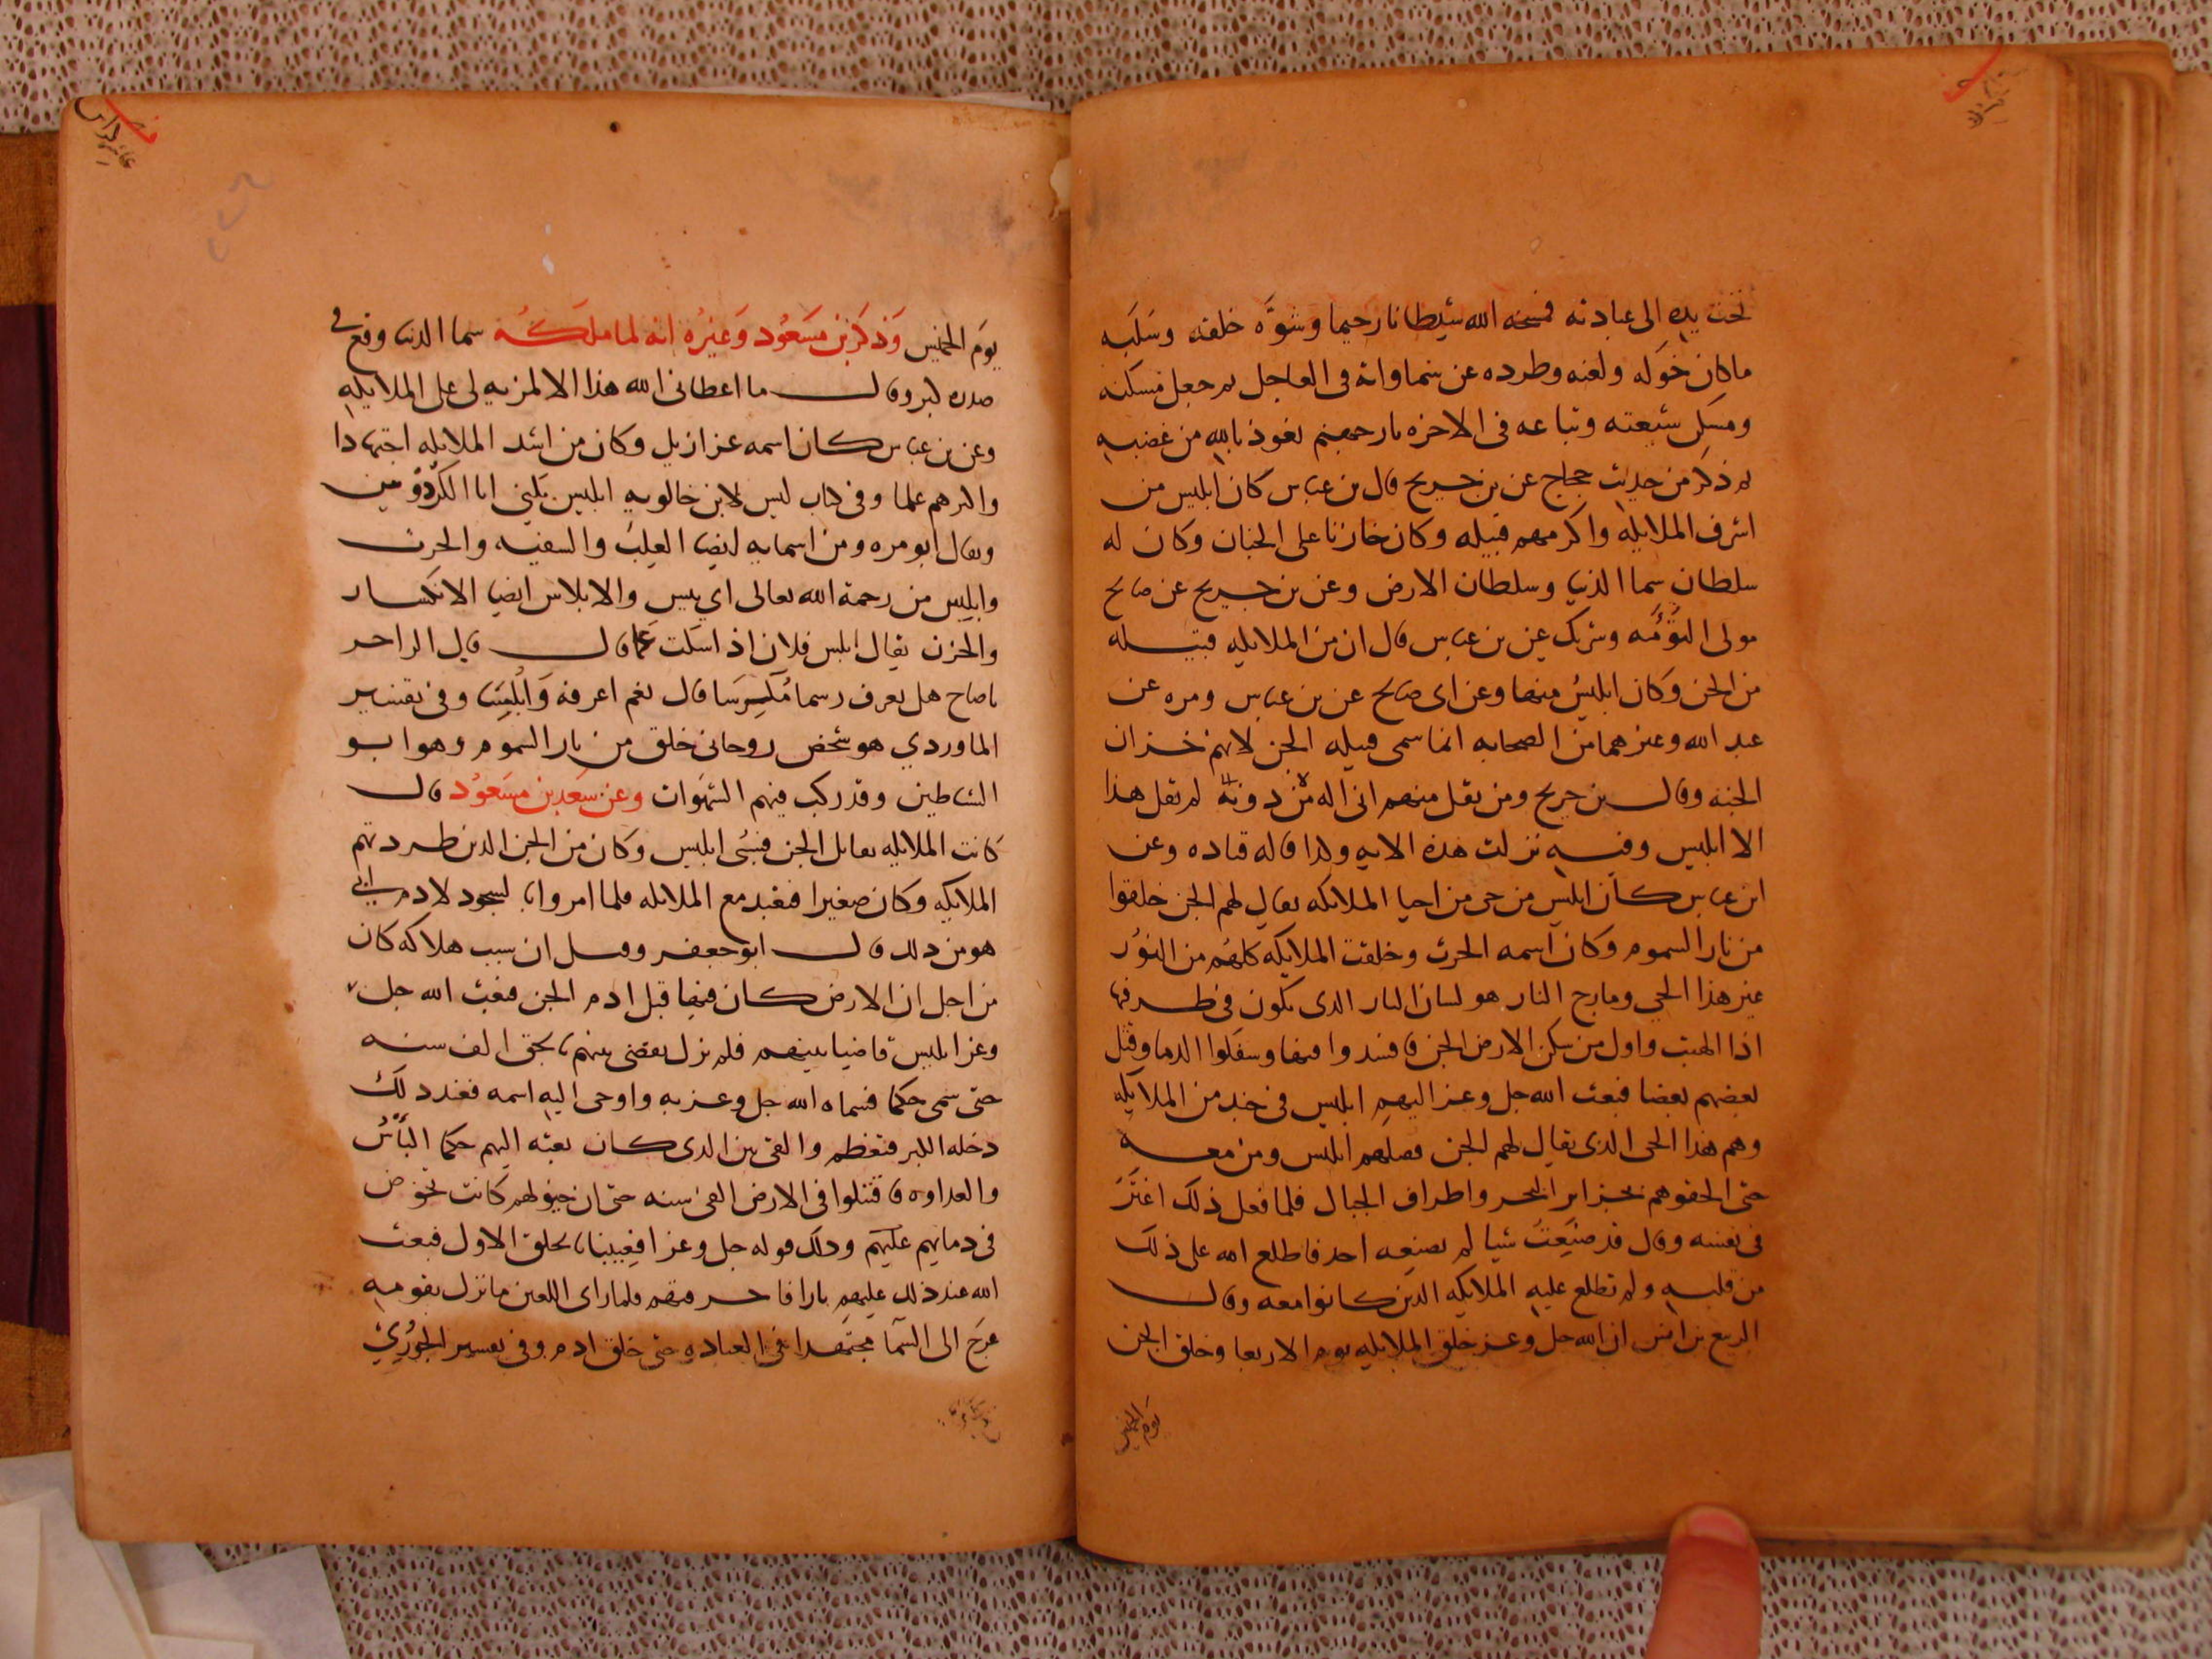 تحت يده الى عبادته فمسخه الله شيطانا رجيما وشوّه خلقه وسلبه
ما كان خوله ولعنه وطرده عن سماواته فى العاجل ثم جعل مسكنه
ومسكن شيعته وتباعه فى الاخره نار جهنم نعوذ بالله من غضبه
ثم ذكر من حديث حجاج عن بن جريج قال بن عباس كان ابليس من
اشرف الملايكه واكرمهم قبيله وكان خازنا على الجنان وكان له
سلطان سما الدنيا وسلطان الارض وعن بن جريج عن صالح
مولى التوءمه وشريك عن بن عباس قال ان من الملايكه قبيله
من الجن وكان ابليس منها وعن ابى صالح عن بن عباس ومره عن
عبد الله وغيرهما من الصحابه انما سمى قبيله الجن لانهم خزان
الجنه وقال بن جريج ومن يقل منهم انى اله من دونه لم يقل هذا
الا ابليس وفيه نزلت هذه الايه وكذا قاله قتاده وعن
ابن عباس كان ابليس من حى من احيا الملايكه يقال لهم الجن خلقوا
من نار السموم وكان اسمه الحرث وخلقت الملايكه كلهم من النور
غير هذا الحي ومارج النار هو لسان النار الذى يكون فى طرفها
اذا الهبت واول من سكن الارض الجن فافسدوا فيها وسفكوا الدما وقتل
بعضهم بعضا فبعث الله جل وعز اليهم ابليس فى جند من الملايكه
وهم هذا الحى الذى يقال لهم الجن فقتلهم ابليس ومن معه
حتى الحقوهم بجزاير البحر واطراف الجبال فلما فعل ذلك اغتر
فى نفسه وقال قد صنعت شيا لم يصنعه احد فاطلع الله على ذلك
من قلبه ولم تطلع عليه الملايكه الذين كانوا معه وقال
الربيع بن انس ان الله جل وعز خلق الملايكه يوم الاربعا وخلق الجن
يوم الخميس
يوم الخميس وذكر بن مسعود وغيره انه لما ملكه سما الدنيا وقع فى
صدره كبر وقال ما اعطانى الله هذا الا لمزيه لى على الملايكه
وعن بن عباس كان اسمه عزازيل وكان من اشد الملايكه اجتهادا
واكثرهم علما وفى كتاب ليس لابن خالويه ابليس يكنى ابا الكردوس
ويقال ابو مره ومن اسمايه ايضا العلب والسفيه والحرث
وابليس من رحمة الله تعالى اي ييس والابلاس ايضا الانكسار
والحزن يقال ابلس فلان اذا سكت غما قال قال الراجز
يا صاح هل تعرف رسما مكرسا قال نعم اعرفه وابلسا وفى تفسير
الماوردي هو شخص روحانى خلق من نار السموم وهو ابو
الشياطين وقد ركب فيهم الشهوات وعن سعد بن مسعود قال
كانت الملايكه تقاتل الجن فسُبى ابليس وكان من الجن الذين طردتهم
الملايكه وكان صغيرا فتعبد مع الملايكه فلما امروا بالسجود لادم ابى
هو من ذلك قال ابو جعفر وقيل ان سبب هلاكه كان
من اجل ان الارض كان فيها قبل ادم الجن فبعث الله جل
وعز ابليس قاضيا بينهم فلم يزل يقضى بينهم بالحق الف سنه
حتى سمى حكما فسماه الله جل وعز به واوحى اليه اسمه فعند ذلك
دخله الكبر فتعظم والقى بين الذى كان بعثه اليهم حكما البأس
والعداوه فاقتتلوا فى الارض الفى سنه حتى ان خيولهم كانت تخوض
فى دمايهم عليهم وذلك قوله جل وعز افعيينا بالخلق الاول فبعث
الله عند ذلك عليهم نارا فاحرقتهم فلما راى اللعين ما نزل بقومه
عرج الى السما مجتهدا فى العباده حتى خلق ادم وفى تفسير الجوزي